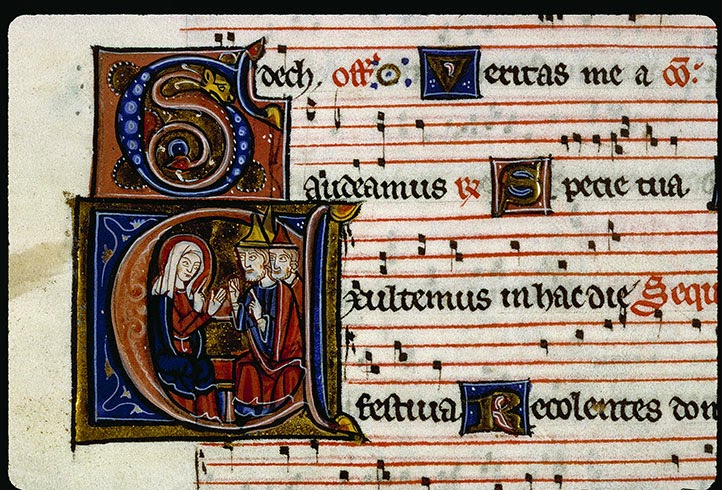 dech. off. Veritas me a co:
Gaudeamus Specie tua
Exultemus in hac die Sequ
festiua Recolentes don